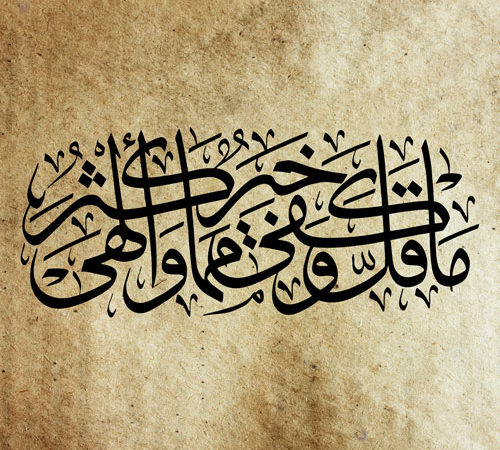 ما قلّ وكفى خير مما كثر وألهى